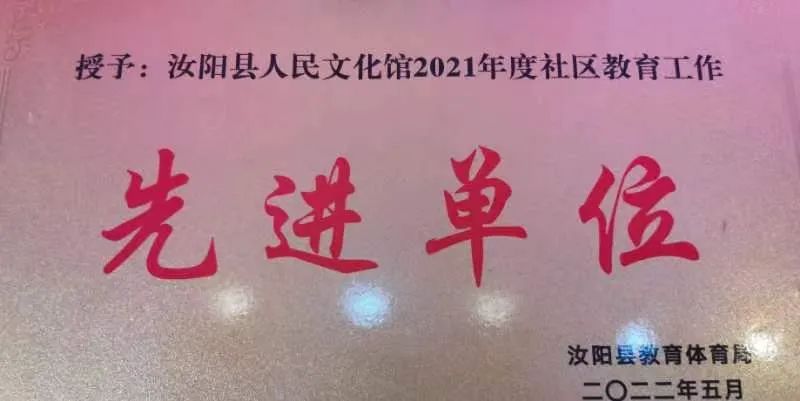 授予：汝阳县人民文化馆2021年度社区教育工作
先进单位
汝阳县教育体育局
二〇二二年五月